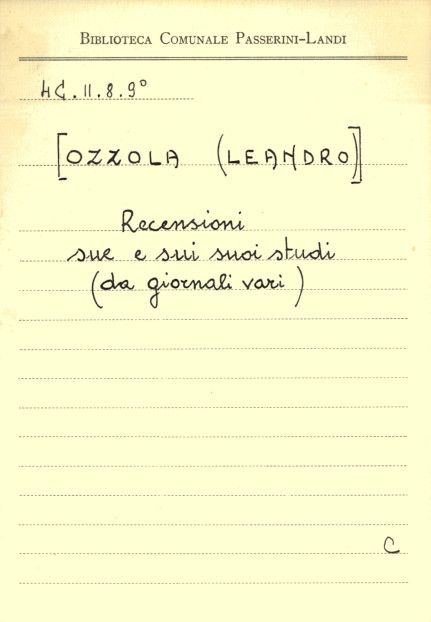 BIBLIOTECA COMUNALE PASSERINI-LANDI
4C.II.8.9°
[OZZOLA (LEANDRO)]
Recensioni
sue e sui suoi studi
(da giornali vari)
C